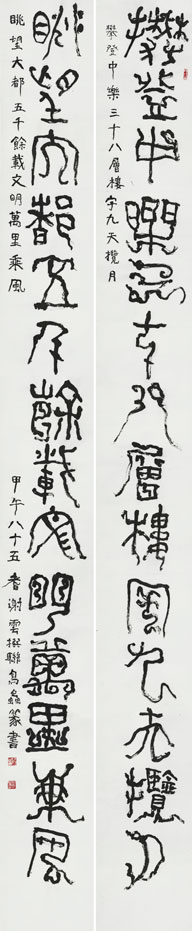 攀登中樂三十八層樓宇九天攬月
攀登中樂三十八層樓宇九天攬月
眺望大都五千餘載文明萬里乘風
眺望大都五千餘載文明萬里乘風
甲午八十五耆謝雲撰聯鳥蟲篆書